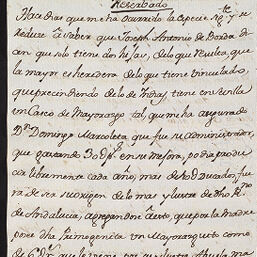 Reserbado
Hace dias que me ha ocurrido la especie sigte y se
Reduce a saber que Joseph Antonio de Borda
an que solo tiene dos hijas, de lo que resulta, que
la mayor es heredera de lo que tiene vinculado,
que prescindiendo de lo de Yndias tiene en Sevilla
un Casco de Mayorazgo tal que me ha asegurado
Dn Domingo Marcoleta, que fue su Administrador,
que gastando 30 en su mejora, podia produ
cir libremente cada año, mas de Ducados, fue
ra de ser su origen de lo mas y lustre de dho Rno
de Andalucia, agregandose a esto, que por la Madre
posee dha primogenita un Mayorazguito como
de que le viene por su Abuela ma